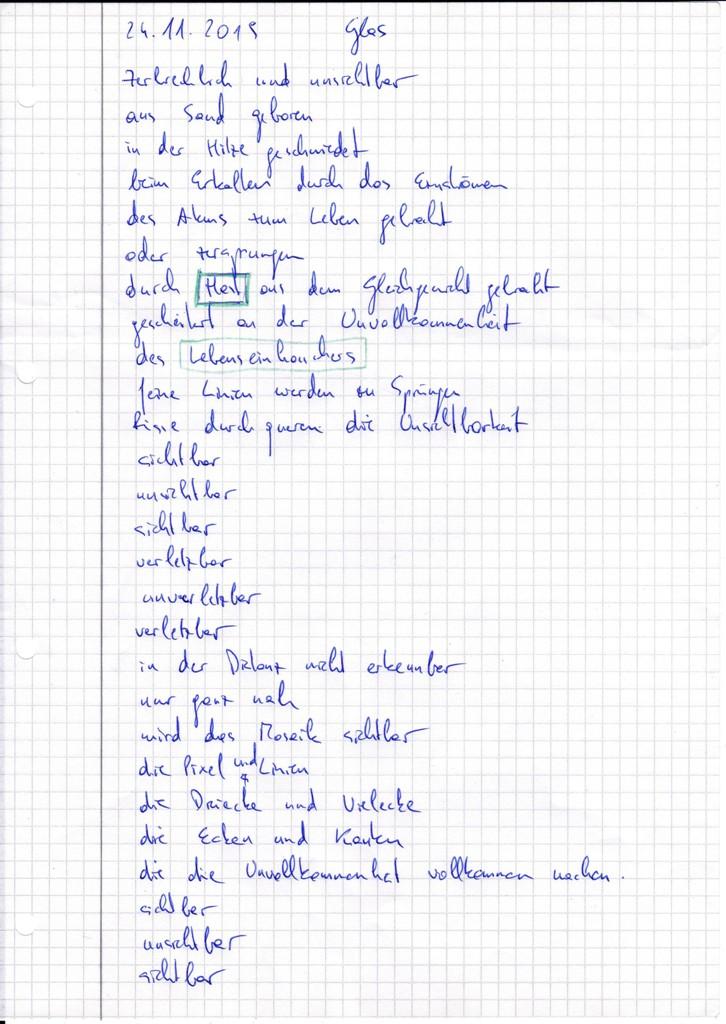 24.11.2019 Glas
Zerbrechlich und unsichtbar
aus Sand geboren
in der Hitze geschmiedet
beim Erkalten durch das Einströmen
des Atems zum Leben gebracht
oder zersprungen
durch aus dem Gleichgewicht gebracht
gescheitert an der Unvollkommenheit
des Lebenseinhauchers
feine Linien werden zu Sprüngen
Risse durchqueren die Unsichtbarkeit
sichtbar
unsichtbar
sichtbar
verletzbar
unverletzbar
verletzbar
in der Distanz nicht erkennbar
nur ganz nah
wird das Mosaik sichtbar
die Pixel und Linien
die Dreiecke und Vielecke
die Ecken und Kanten
die die Unvollkommenheit vollkommen machen.
sichtbar
unsichtbar
sichtbar